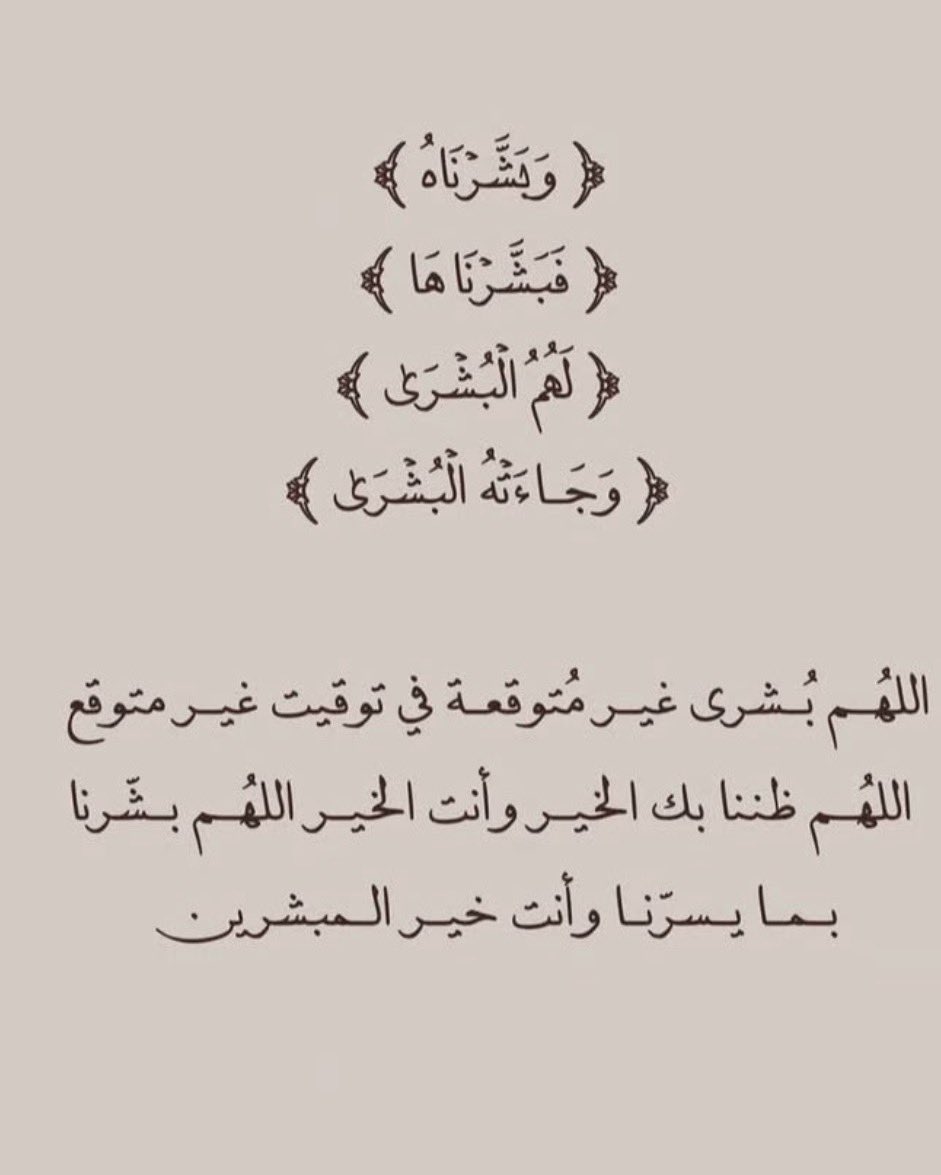 ﴿ وَبَشَّرْنَاهُ ﴾
﴿ فَبَشَّرْنَاهَا ﴾
﴿ لَهُمُ الْبُشْرَىٰ ﴾
﴿ وَجَاءَتْهُ الْبُشْرَىٰ ﴾
اللهُم بُشرى غير مُتوقعة في توقيت غير متوقع
اللهُم ظننا بك الخير وأنت الخير اللهُم بشّرنا
بما يسرّنا وأنت خير المبشرين